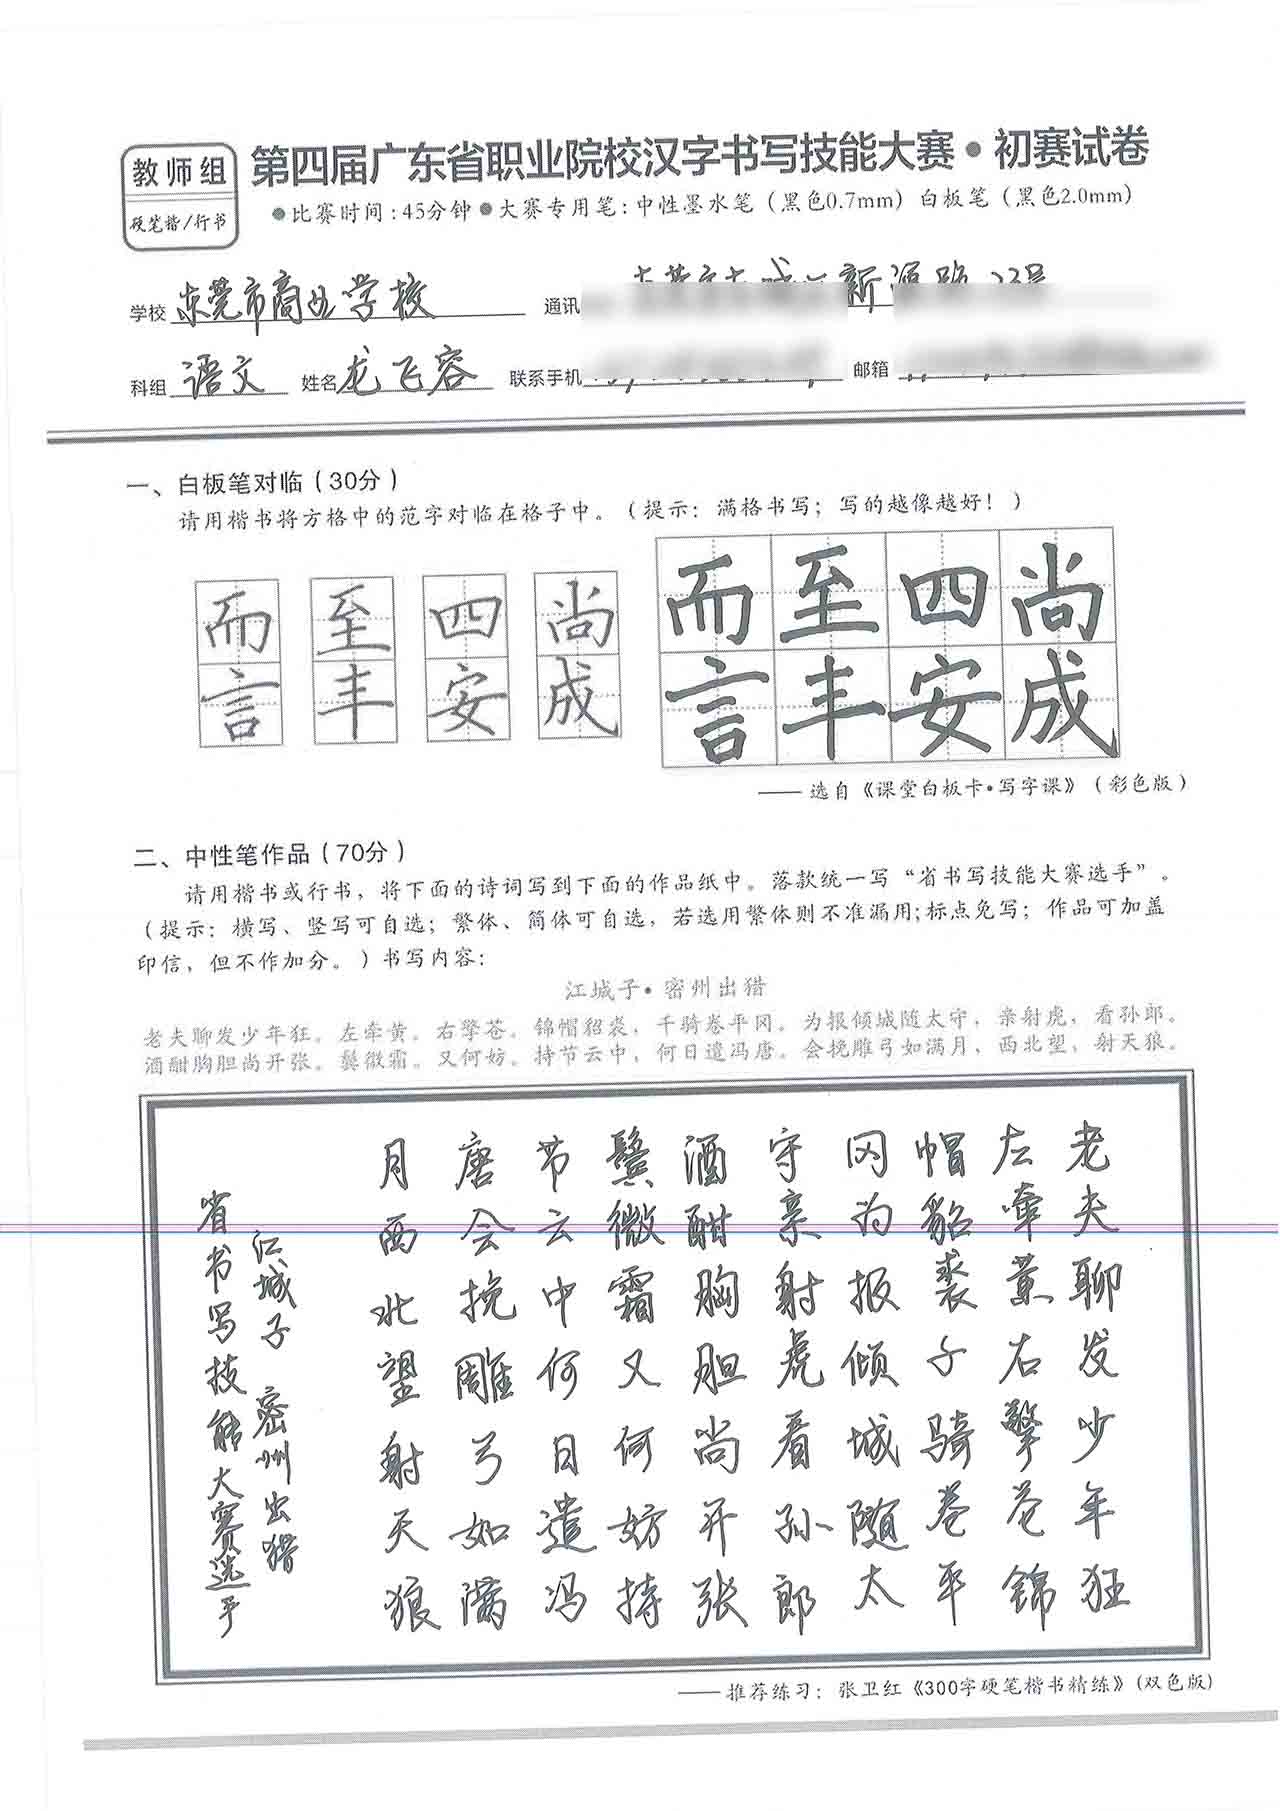 教师组
硬笔楷/行书
第四届广东省职业院校汉字书写技能大赛•初赛试卷
●比赛时间:45分钟●大赛专用笔:中性墨水笔（黑色0.7mm）白板笔（黑色2.0mm）
学校 东莞市商业学校 通讯 新源路23号
科组 语文 姓名 龙飞容 联系手机 邮箱
一、白板笔对临（30分）
请用楷书将方格中的范字对临在格子中。（提示：满格书写；写的越像越好！）
而 至 四 尚 而至四尚
言 丰 安 成 言丰安成
——选自《课堂白板卡•写字课》（彩色版）
二、中性笔作品（70分）
请用楷书或行书，将下面的诗词写到下面的作品纸中。落款统一写“省书写技能大赛选手”。
（提示：横写、竖写可自选；繁体、简体可自选，若选用繁体则不准漏用;标点免写；作品可加盖
印信，但不作加分。）书写内容：
江城子•密州出猎
老夫聊发少年狂。左牵黄。右擎苍。锦帽貂裘，千骑卷平冈。为报倾城随太守，亲射虎，看孙郎。
酒酣胸胆尚开张。鬓微霜。又何妨。持节云中，何日遣冯唐。会挽雕弓如满月，西北望，射天狼。
老夫聊发少年狂
左牵黄右擎苍锦
帽貂裘千骑卷平
冈为报倾城随太
守亲射虎看孙郎
酒酣胸胆尚开张
鬓微霜又何妨持
节云中何日遣冯
唐会挽雕弓如满
月西北望射天狼
江城子 密州出猎
省书写技能大赛选手
——推荐练习：张卫红《300字硬笔楷书精练》(双色版)